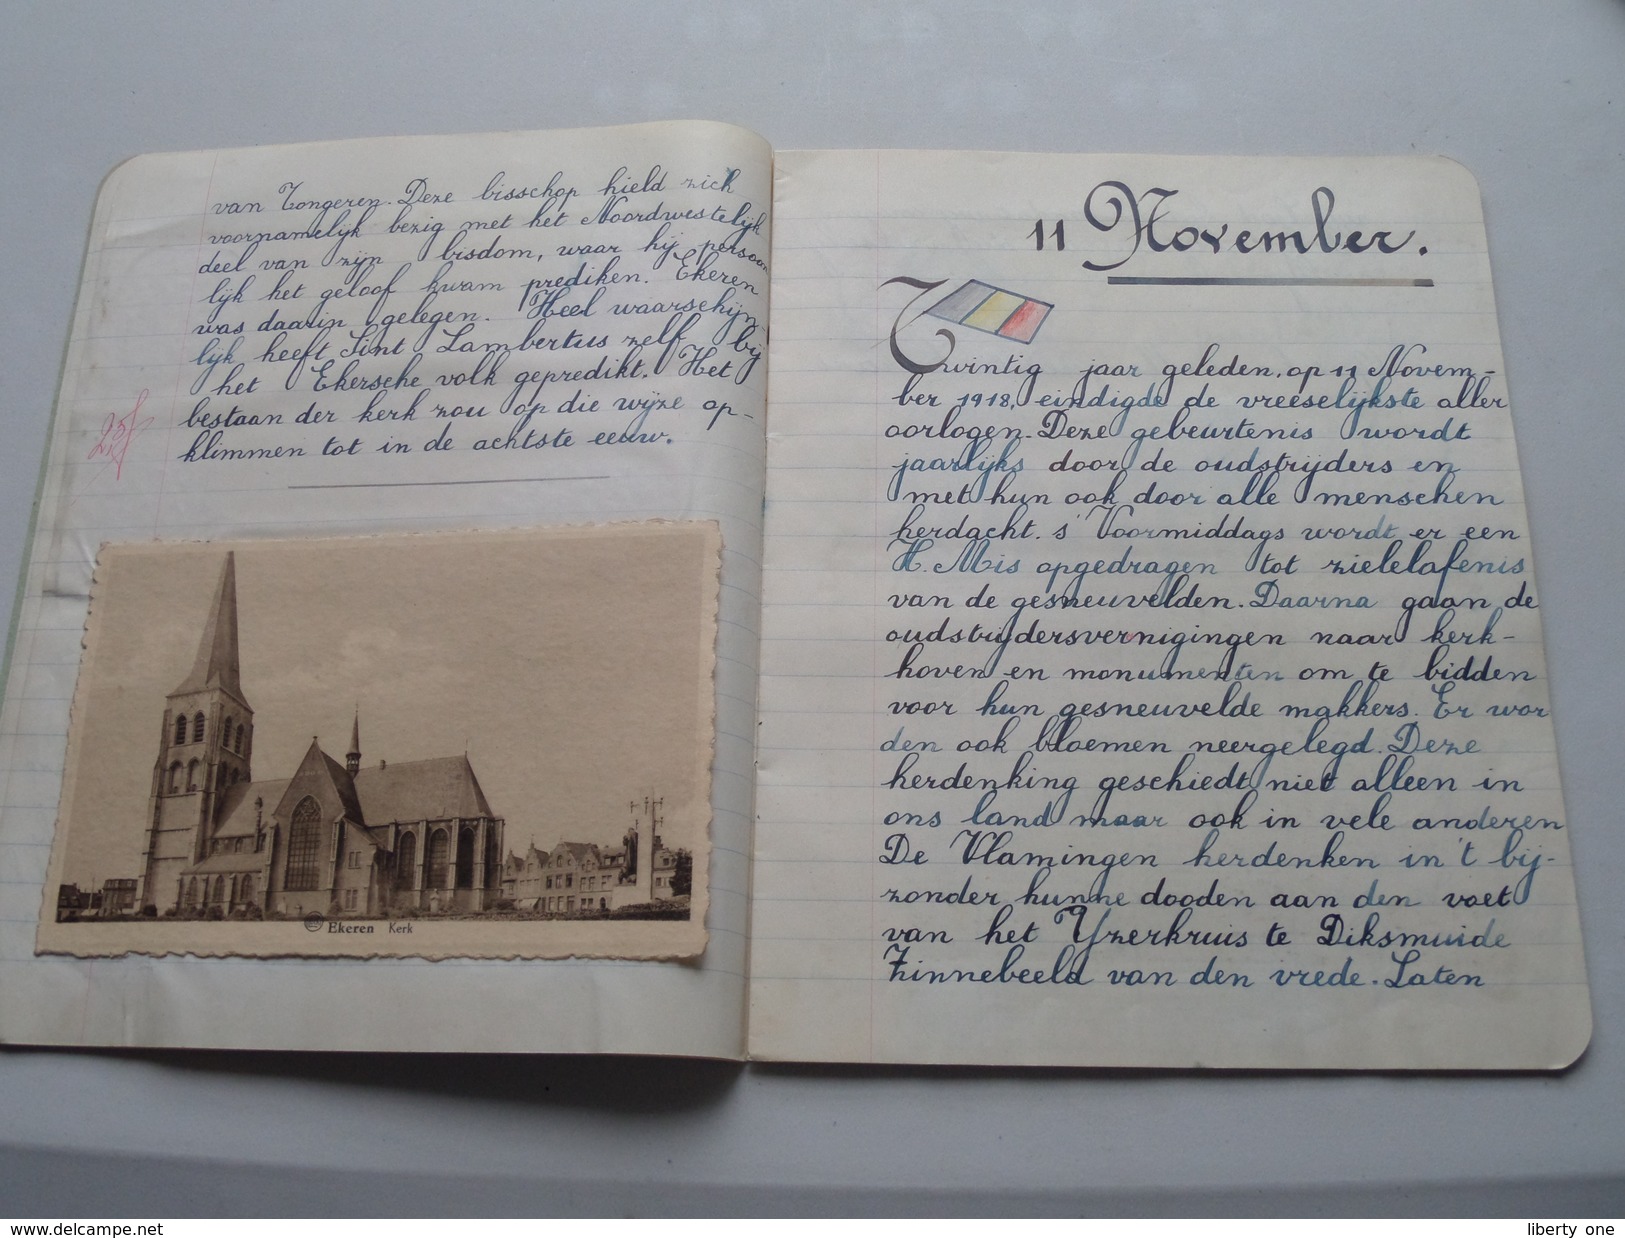 van Tongeren. Deze bisschop hield zich
voornamelijk bezig met het Noordwestelijk
deel van zijn bisdom, waar hij persoon
lijk het geloof kwam prediken. Ekeren
was daarin gelegen. Heel waarschijn-
lijk heeft Sint Lambertus zelf bij
het Ekersche volk gepredikt. Het
bestaan der kerk zou op die wijze op-
klimmen tot in de achtste eeuw.
Ekeren Kerk
11 November.
Twintig jaar geleden, op 11 Novem-
ber 1918, eindigde de vreeselijkste aller
oorlogen. Deze gebeurtenis wordt
jaarlijks door de oudstrijders en
met hun ook door alle menschen
herdacht. s' Voormiddags wordt er een
H. Mis opgedragen tot zielelafenis
van de gesneuvelden. Daarna gaan de
oudstrijdersvernigingen naar kerk-
hoven en monumenten om te bidden
voor hun gesneuvelde makkers. Er wor
den ook bloemen neergelegd. Deze
herdenking geschiedt niet alleen in
ons land maar ook in vele anderen
De Vlamingen herdenken in 't bij-
zonder hunne dooden aan den voet
van het Yzerkruis te Diksmuide
Zinnebeeld van den vrede. Laten
delcampe.net
liberty one